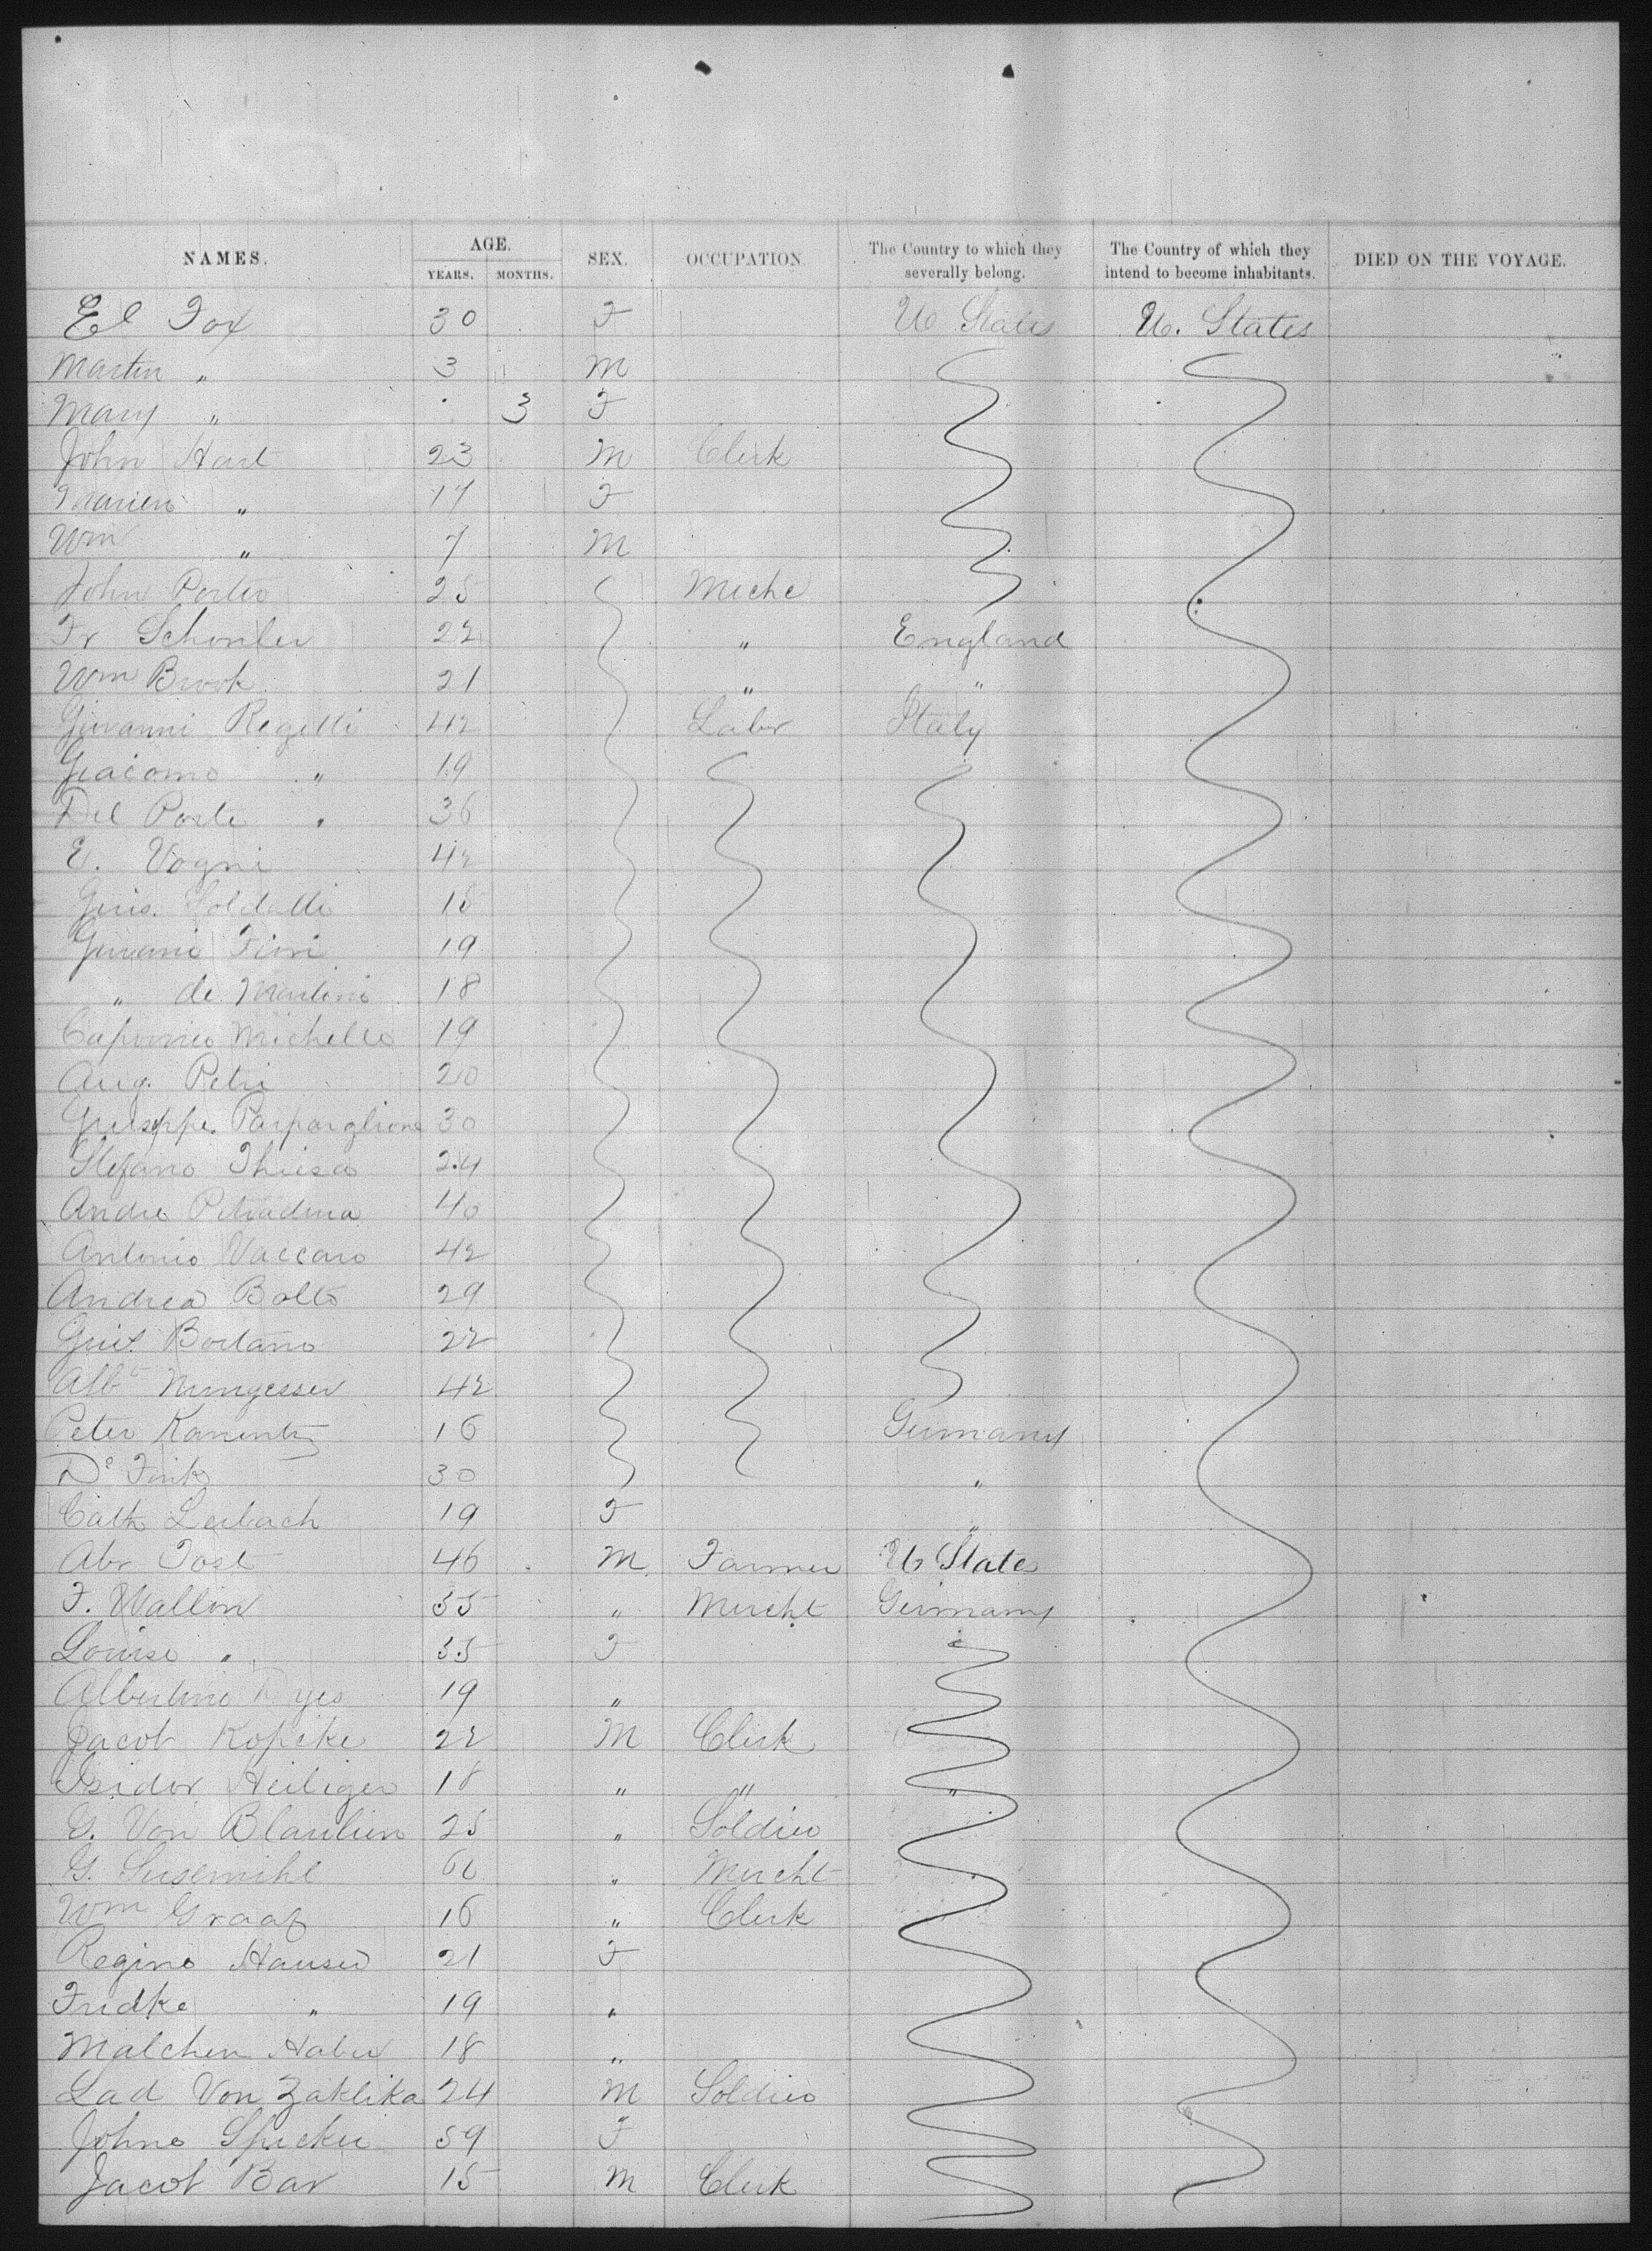 NAMES. AGE. YEARS. MONTHS. SEX. OCCUPATION. The Country to which they severally belong. The Country of which they intend to become inhabitants. DIED ON THE VOYAGE.
El Fox 30 F U States U. States
Martin " 3 M
Mary " 3 F
John Hart 23 M Clerk
" 17 F
Wm " 7 M
John Porter 25 Mechc
Fr 22 " England
Wm Brook 21 " "
Giovanni Regetti 42 Labr Italy
Giacomo " 19
Del Ponte " 36
E. Vogni 42
Guis. Soldatti 18
Fiori 19
" de Martino 18
Michelle 19
Aug. Petri 20
Guiseppe. Parpaglione 30
Stefano 24
Andre 40
Antonio Vaccaro 42
Andrea Bolto 29
Guis. 22
Albt Nungesser 42
Peter 16 Germany
Do Fink 30 "
Cath Leibach 19 F "
Abr Tost 46 M Farmer U States
F. Wallin 35 " Mercht Germany
Louise " 35 F
Albertine 19 "
Jacob Kopeke 22 M Clerk
Isidor Heiliger 18 " " "
G. Von 25 " Soldier
G. Susemihl 60 " Mercht
Wm Graaf 16 " Clerk
Regine Hauser 21 F
Fridke " 19 "
Malchen Haber 18 "
Lad Von Zaklika 24 M Soldier
Johne Spicker 59 F
Jacob Bar 15 M Clerk